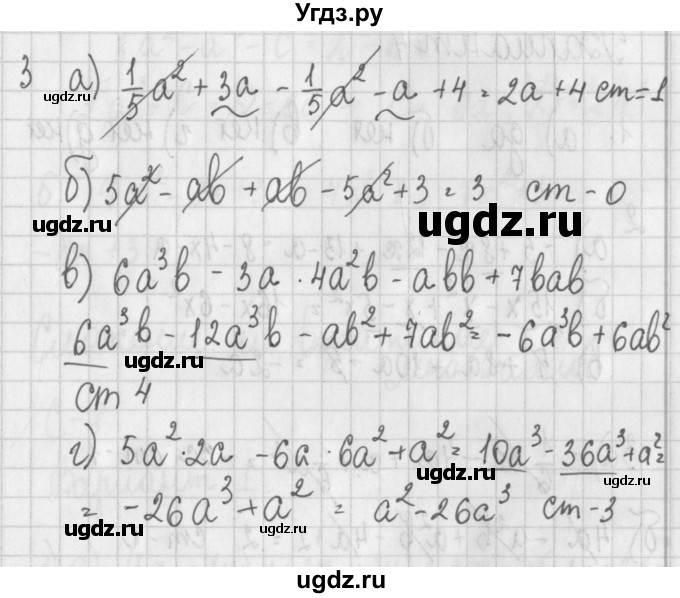 Угдз.ру
3 а) 1/5 a² + 3a - 1/5 a² - a + 4 = 2a + 4 ст = 1
ugdz.ru
ugdz.ru
б) 5a² - ab + ab - 5a² + 3 = 3 ст - 0
ugdz.ru
ugdz.ru
в) 6a³b - 3a · 4a²b - abb + 7bab
6a³b - 12a³b - ab² + 7ab² = -6a³b + 6ab²
ugdz.ru
ugdz.ru
ст 4
г) 5a² · 2a - 6a · 6a² + a² = 10a³ - 36a³ + a² =
ugdz.ru
= -26a³ + a² = a² - 26a³ ст - 3
ugdz.ru
ugdz.ru
ugdz.ru